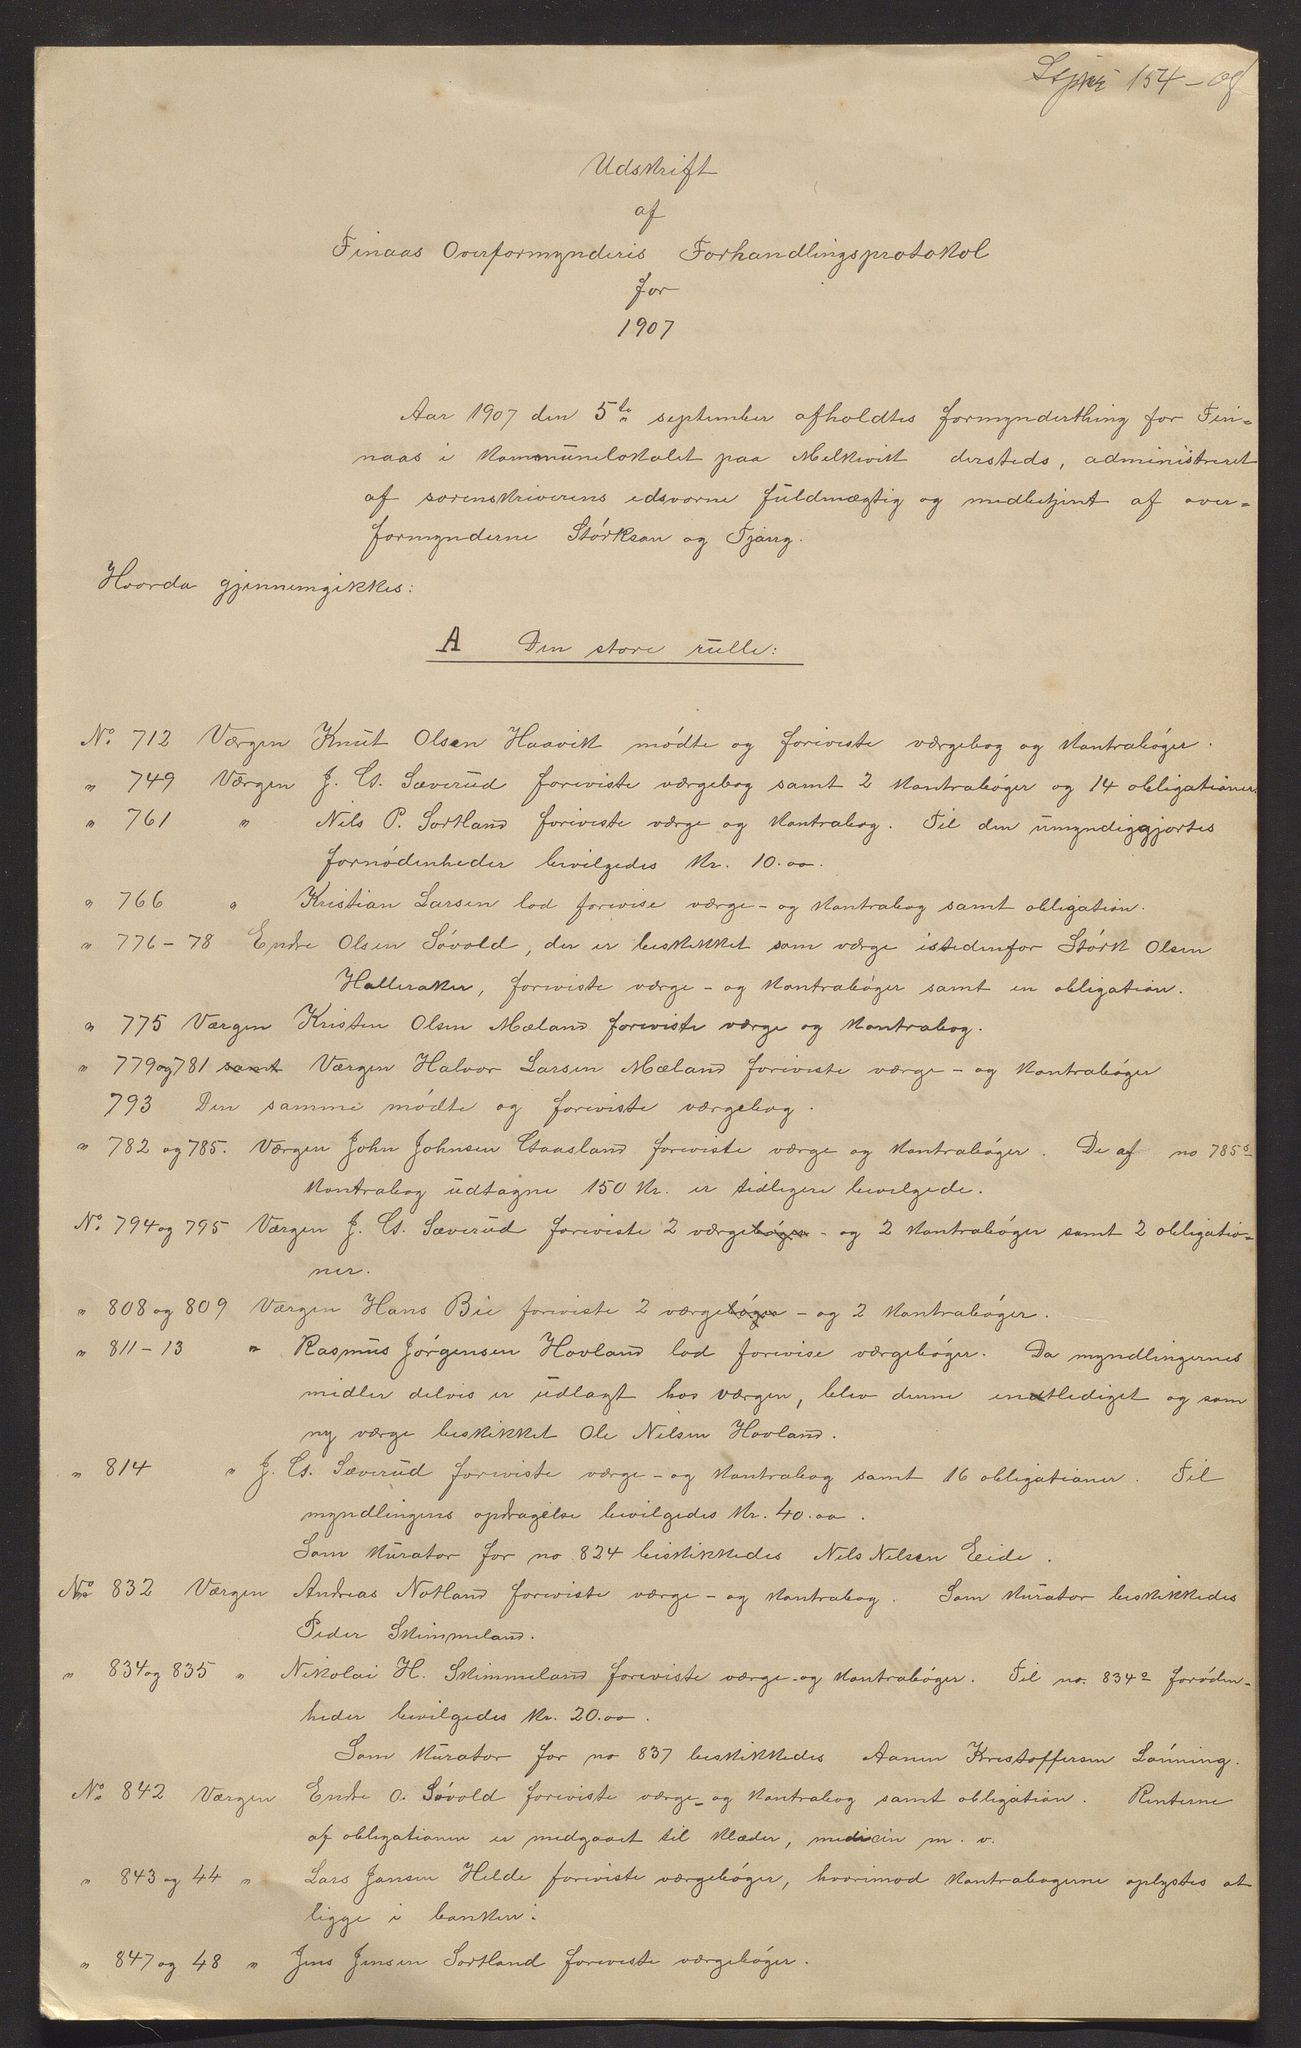 154-08
Udskrift
af
Finaas Overformynderis Forhandlingsprotokol
for
1907
Aar 1907 den 5te september afholdtes formynderthing for Fin-
naas i kommunelokalet paa Melkevik dersteds, administreret
af sorenskriverens edsvorne fuldmægtig og medbetjent af over-
formynderne Størksen og Fjærg.
Hvorda gjennemgikkes:
A Den store rulle:
No. 712 Værgen Knut Olsen Haavik mødte og foreviste værgebog og kontrabøger.
" 749 Værgen J. Cs. Sæverud foreviste værgebog samt 2 kontrabøger og 14 obligationer.
" 761 " Nils P. Sortland foreviste værge og kontrabog. Til den umyndiggjortes
fornødenheder bevilgedes kr. 10.00.
" 766 " Kristian Larsen lod forevise værge- og kontrabog samt obligation.
" 776-78 Endre Olsen Søvold, der er beskikket som værge istedenfor Størk Olsen
Halleraker, foreviste værge- og kontrabøger samt en obligation.
" 775 Værgen Kristen Olsen Mæland foreviste værge og kontrabog.
" 779 og 781 samt Værgen Halvor Larsen Mæland foreviste værge- og kontrabøger
793 Den samme mødte og foreviste værgebog.
" 782 og 785. Værgen John Johnsen Staasland foreviste værge og kontrabøger. De af no 785s
kontrabog udtagne 150 kr. er tidligere bevilgede.
No. 794 og 795 Værgen J. Cs. Sæverud foreviste 2 værgebøger - og 2 kontrabøger samt 2 obligatio-
ner.
" 808 og 809 Værgen Hans Bie foreviste 2 værgebøger - og 2 kontrabøger.
" 811-13 " Rasmus Jørgensen Hovland lod forevise værgebøger. Da myndlingernes
midler delvis er udlagt hos værgen, blev denne entlediget og som
ny værge beskikket Ole Nilsen Hovland.
" 814 " J. Cs. Sæverud foreviste værge- og kontrabog samt 16 obligationer. Til
myndlingens opdragelse bevilgedes kr. 40.00.
Som kurator for no 824 beskikkedes Nels Nelsen Eide.
No 832 Værgen Andreas Notland foreviste værge- og kontrabog. Som kurator beskikkedes
Peder Skimmeland.
" 834 og 835 " Nikolai H. Skimmeland foreviste værge- og kontrabøger. Til no. 834s forøden-
heder bevilgedes kr. 20.00.
Som kurator for no 837 beskikkedes Aanen Kristoffersen Lønning.
No. 842 Værgen Endre O. Søvold foreviste værge- og kontrabog samt obligation. Renterne
af obligationen er medgaaet til klæder, medicin m. v.
" 843 og 44 " Lars Jansen Helde foreviste værgebøger, hvorimod kontrabøgerne oplystes at
ligge i banken.
" 847 og 48 " Jens Jensen Sortland foreviste værgebøger.